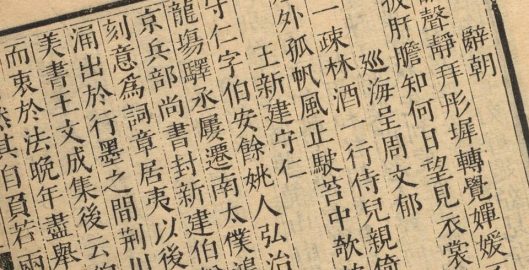 辭朝
聲靜拜彤墀轉覺嬋媛
肝膽知何日望見衣裳
巡海呈周文郁
一疎林酒一行侍兒親倚
外孤帆風正駛苔中欹
王新建守仁
守仁字伯安餘姚人弘治
龍場驛丞屢遷南太僕鴻
京兵部尚書封新建伯
刻意為詞章居夷以後
涌出於行墨之間荊川
美書王文成集後云
而衷於法晚年盡舉
然其自負若兩